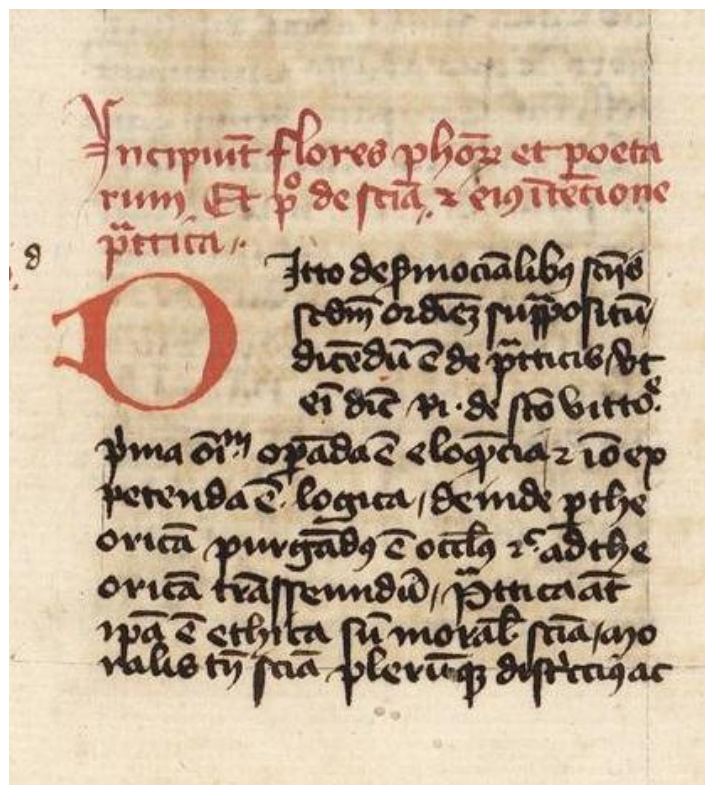 Incipiūt flores phōꝝ et poeta
rum Et pº de sciā ⁊ eiꝰ ītētione
pᵃctica
d
Dicto de s̄mociālibꝰ sciis
scdm̄ ordiēꝫ supposituꝝ
dicēdū ē de pᵃcticis vt
eī dic̄ Ri. de scō victoᵉ.
pima oīm opāda ē eloqn̄cia ⁊ iō ex
petenda ē logica / deinde p the
oricā purgādꝰ ē occlꝰ ⁊c̄ ad the
oricā trāsseundū / Pᵃctica at̄
ipā ē ethica sū moral̓ sciā / mo
ralis tn̄ sciā plerūqꝫ districtiꝰ ac